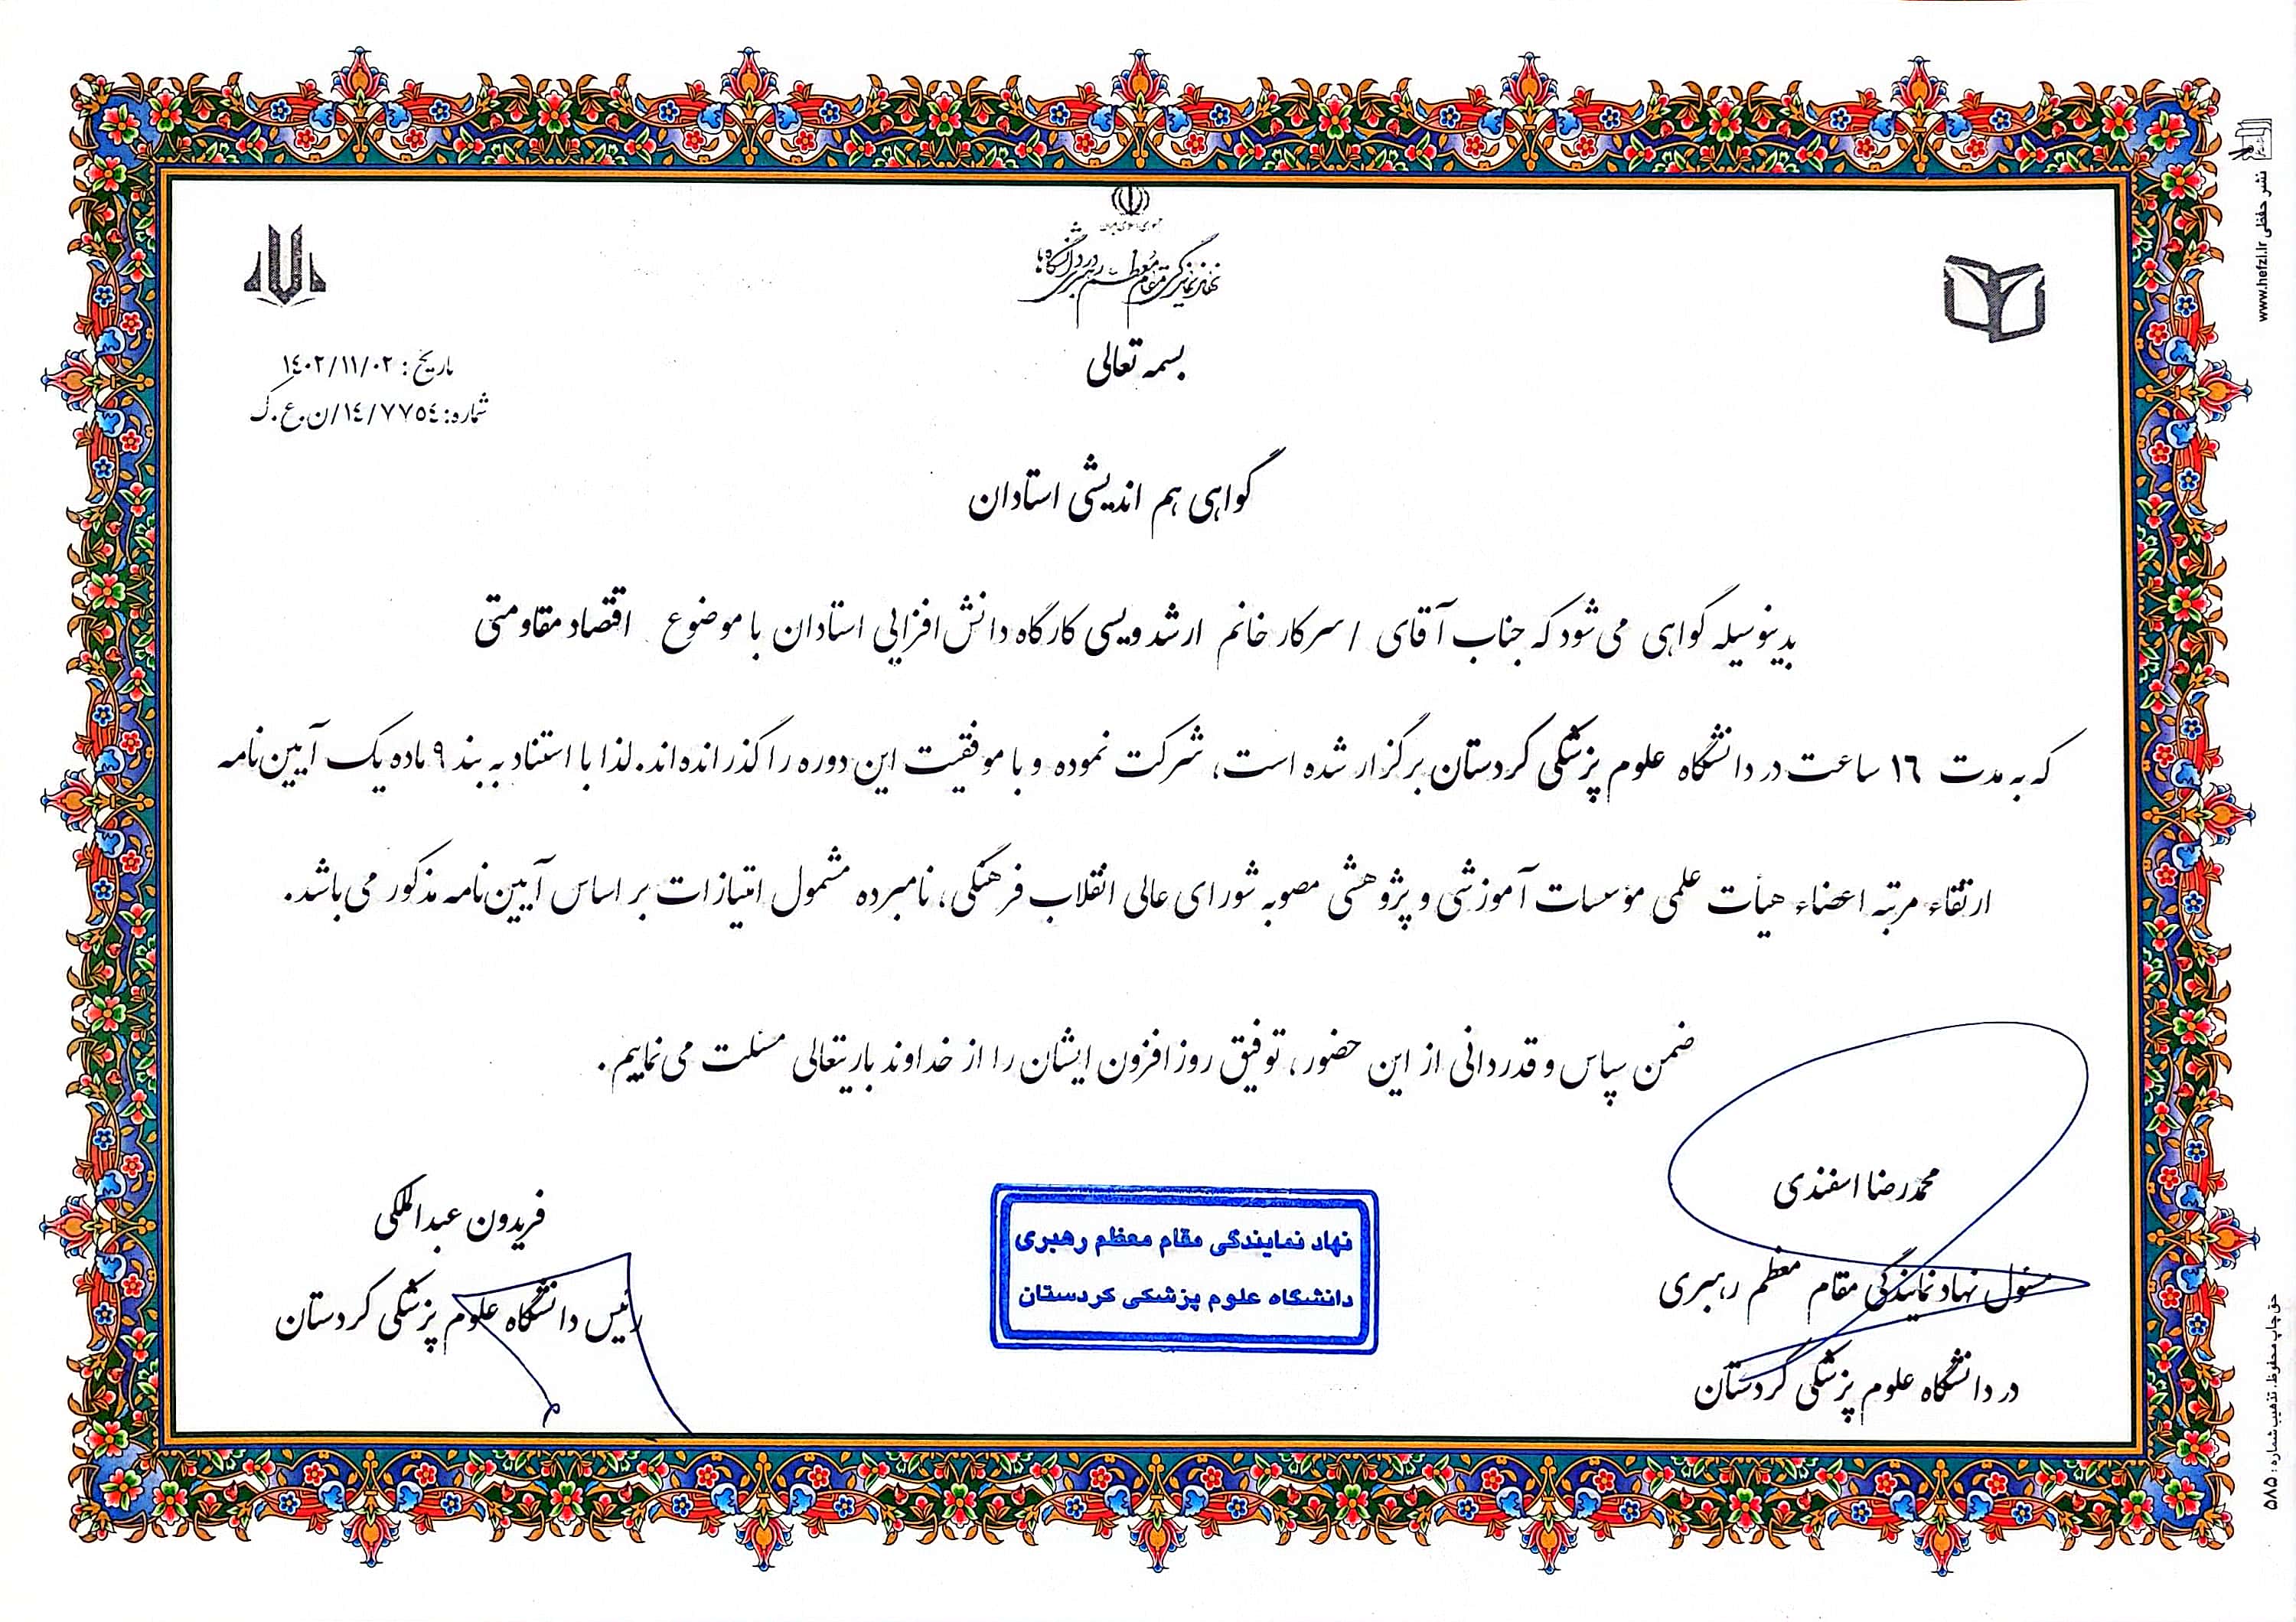 جمهوری اسلامی ایران
نهاد نمایندگی مقام معظم رهبری در دانشگاه‌ها
بسمه تعالی
تاریخ: ١٤٠٢/١١/٠٢
شماره: ١٤/٧٧٥٤/ن.ع.ک
گواهی هم اندیشی استادان
بدینوسیله گواهی می‌شود که جناب آقای / سرکار خانم ارشد ویسی کارگاه دانش افزایی استادان با موضوع اقتصاد مقاومتی
که به مدت ١٦ ساعت در دانشگاه علوم پزشکی کردستان برگزار شده است، شرکت نموده و با موفقیت این دوره را گذرانده‌اند. لذا با استناد به بند ٩ ماده یک آیین‌نامه
ارتقاء مرتبه اعضاء هیأت علمی مؤسسات آموزشی و پژوهشی مصوبه شورای عالی انقلاب فرهنگی، نامبرده مشمول امتیازات بر اساس آیین‌نامه مذکور می‌باشد.
ضمن سپاس و قدردانی از این حضور، توفیق روزافزون ایشان را از خداوند باریتعالی مسئلت می‌نماییم.
محمدرضا اسفندی
مسئول نهاد نمایندگی مقام معظم رهبری
در دانشگاه علوم پزشکی کردستان
نهاد نمایندگی مقام معظم رهبری
دانشگاه علوم پزشکی کردستان
فریدون عبدالملکی
رئیس دانشگاه علوم پزشکی کردستان
نشر حفظی www.hefzi.ir
حق چاپ محفوظ. تذهیب شماره: ۵۸۵